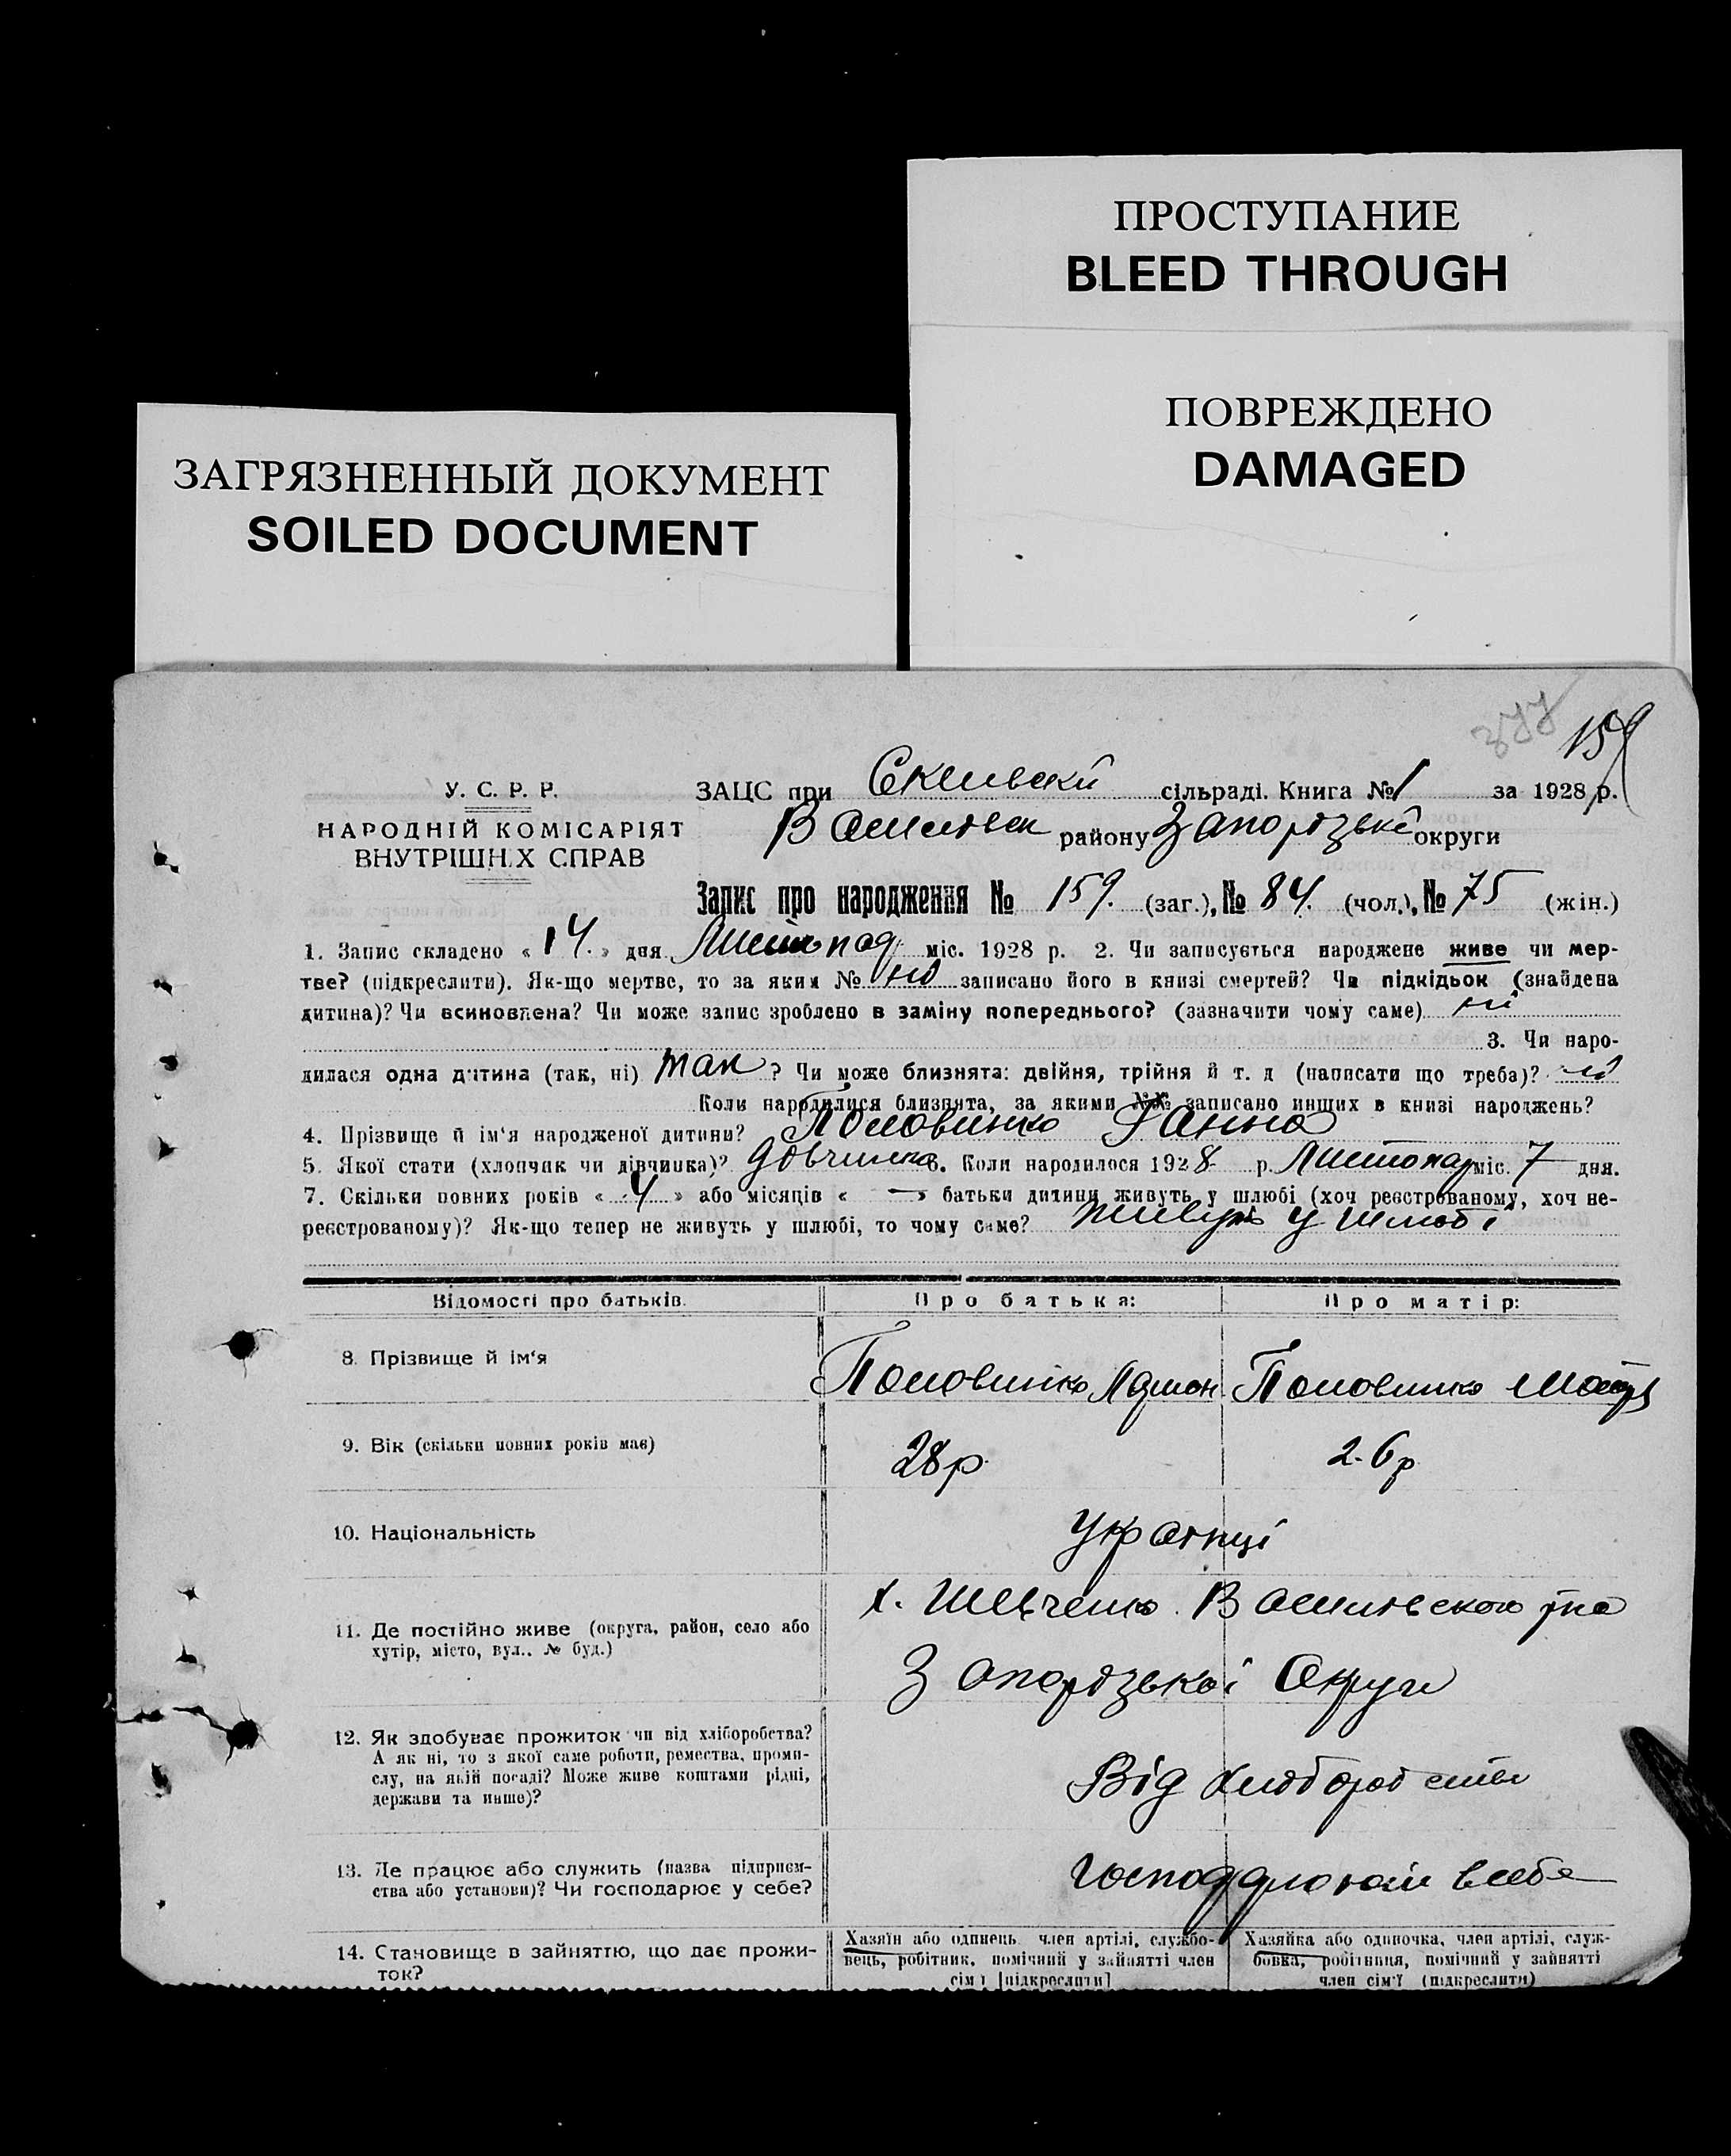 ПРОСТУПАНИЕ
BLEED THROUGH
ПОВРЕЖДЕНО
DAMAGED
ЗАГРЯЗНЕННЫЙ ДОКУМЕНТ
SOILED DOCUMENT
159
У. С. Р. Р.
НАРОДНІЙ КОМІСАРІЯТ
ВНУТРІШНІХ СПРАВ
ЗАЦС при Скельскій сільраді. Книга № 1 за 1928 р.
Василівськ району Запорізької округи
Запис про народження № 159. (заг.), № 84. (чол.), № 75 (жін.)
1. Запис складено « 14. » дня Листопад міс. 1928 р. 2. Чи записується народжене живе чи мер-
тве? (підкреслити). Як-що мертве, то за яким № ні записано його в книзі смертей? Чи підкідьок (знайдена
дитина)? Чи всиновлена? Чи може запис зроблено в заміну попереднього? (зазначити чому саме) ні
3. Чи наро-
дилася одна дитина (так, ні) так? Чи може близнята: двійня, трійня й т. д (написати що треба)? ні
Коли народилися близнята, за якими №№ записано инших в книзі народжень?
4. Прізвище й ім'я народженої дитини? Половинко Ганна
5. Якої стати (хлопчик чи дівчинка)? дівчинка 6. Коли народилося 1928 р. Листопад міс. 7 дня.
7. Скільки повних років « 4 » або місяців « — » батьки дитини живуть у шлюбі (хоч реєстрованому, хоч не-
реєстрованому)? Як-що тепер не живуть у шлюбі, то чому саме? живуть у шлюбі
Відомості про батьків. Про батька: Про матір:
8. Прізвище й ім'я Половинко Половинко
9. Вік (скільки повних років має) 28 р. 26 р
10. Національність Українці
11. Де постійно живе (округа, район, село або
хутір, місто, вул.. № буд.)
х. Шевченко Василівского р-на
Запорізької Округи
12. Як здобуває прожиток чи від хліборобства?
А як ні, то з якої саме роботи, ремества, проми-
слу, на якій посаді? Може живе коштами рідні,
держави та инше)?
Від хліборобства
13. Де працює або служить (назва підприєм-
ства або установи)? Чи господарює у себе?
в себе
14. Становище в зайняттю, що дає прожи-
ток?
Хазяїн або одинець член артілі, службо-
вець, робітник, помічний у зайнятті член
сім'ї [підкреслити]
Хазяйка або одиночка, член артілі, служ-
бовка, робітниця, помічний у зайнятті
член сім'ї (підкреслити)